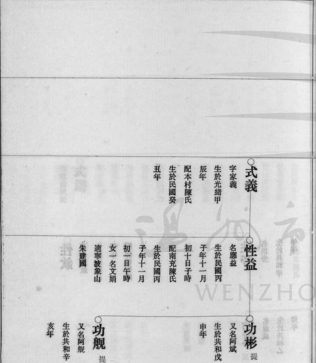 式義
字家義
生於光緒甲
辰年
配本村陳氏
生於民國癸
丑年
性益
名應益
生於民國丙
子年十一月
初十日子時
配南充陳氏
生於民國丙
子年十一月
初一日午時
女一名文娟
適寧波象山
朱建國
功彬 提
又名阿斌
生於共和戊
申年
功舰 提
又名阿舰
生於共和辛
亥年
WENZHO